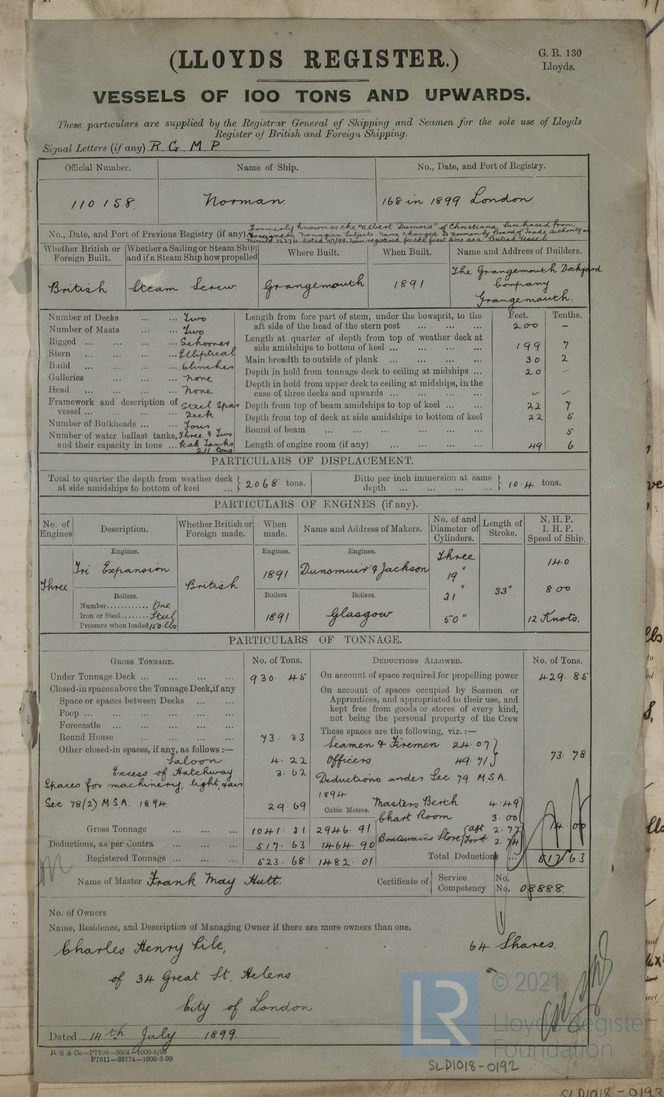 (LLOYDS REGISTER.)
G. R. 130
Lloyds.
VESSELS OF 100 TONS AND UPWARDS.
These particulars are supplied by the Registrar General of Shipping and Seamen for the sole use of Lloyds
Register of British and Foreign Shipping.
Signal Letters (if any) R. G. M. P
Official Number. Name of Ship. No., Date, and Port of Registry.
110158. Norman. 168 in 1899 London.
No., Date, and Port of Previous Registry (if any).
Formerly known as the "Albert Dumois" of Christiana, Purchased from
Foreigners, Norwegian Subjects. Name changed to Norman by Board of Trade Authority
Now registered for the first time as a British Vessel
Whether British or Foreign Built. Whether a Sailing or Steam Ship; and if a Steam Ship how propelled Where Built. When Built. Name and Address of Builders.
British Steam Screw Grangemouth 1891 The Grangemouth Dockyard
Company
Grangemouth.
Number of Decks ... ... Two
Number of Masts ... ... Two
Rigged ... ... Schooner
Stern ... ... Elliptical
Build ... ... Clincher
Galleries ... ... None
Head ... ... None
Framework and description of vessel ... Steel Spar Deck
Number of Bulkheads ... Four
Number of water ballast tanks, and their capacity in tons ... Three & Two Peak Tanks 211 tons
Feet. Tenths.
Length from fore part of stem, under the bowsprit, to the aft side of the head of the stern post ... 200 –
Length at quarter of depth from top of weather deck at side amidships to bottom of keel ... 199 7
Main breadth to outside of plank ... 30 2
Depth in hold from tonnage deck to ceiling at midships ... 20 –
Depth in hold from upper deck to ceiling at midships, in the case of three decks and upwards ...
Depth from top of beam amidships to top of keel ... 22 7
Depth from top of deck at side amidships to bottom of keel 22 5
Round of beam ... 5
Length of engine room (if any) ... 49 6
PARTICULARS OF DISPLACEMENT.
Total to quarter the depth from weather deck at side amidships to bottom of keel ... } 2068 tons. Ditto per inch immersion at same depth ... } 10.4 tons.
PARTICULARS OF ENGINES (if any).
No. of Engines Description. Whether British or Foreign made. When made. Name and Address of Makers. No. of and Diameter of Cylinders. Length of Stroke. N. H. P. I. H. P. Speed of Ship.
Engines. Engines. Engines. Three 140
Three Tri Expansion British 1891 Dunsmuir & Jackson 19"
Boilers. Boilers. Boilers. 31" 33" 800
Number............ One
Iron or Steel...... Steel 1891 Glasgow 50" 12 Knots.
Pressure when loaded 150 lbs
PARTICULARS OF TONNAGE.
Gross Tonnage. No. of Tons. Deductions Allowed. No. of Tons.
Under Tonnage Deck ... 930.45
Closed-in spaces above the Tonnage Deck, if any
Space or spaces between Decks ...
Poop ...
Forecastle ...
Round House ... 73.33
Other closed-in spaces, if any, as follows :—
Saloon 4.22
Excess of Hatchway 3.62
Spaces for machinery, light, & air
Sec 78(2) M.S.A. 1894 29.69
Gross Tonnage ... 1041.31 2946.91
Deductions, as per Contra ... 517.63 1464.90
Registered Tonnage ... 523.68 1482.01
Cubic Metres.
On account of space required for propelling power 429.85
On account of spaces occupied by Seamen or
Apprentices, and appropriated to their use, and
kept free from goods or stores of every kind,
not being the personal property of the Crew
These spaces are the following, viz. :—
Seamen & Firemen 24.07
Officers 49.71 } 73.78
Deductions under Sec 79 M.S.A.
1894
Masters Berth 4.49
Chart Room 3.00
Boatswains Store { aft 2.77 14.00
fort 2.74
Total Deductions ... 517.63
Name of Master Frank May Hutt. Certificate of { Service No.
Competency No. 08888.
No. of Owners
Name, Residence, and Description of Managing Owner if there are more owners than one.
Charles Henry Pile, 64 Shares.
of 34 Great St. Helens
City of London
Dated 14th July 1899
P7811—28774—1000-3-99
LR
© 2021
Lloyd's Register
Foundation
SLD1018-0192
SLD1018-0193